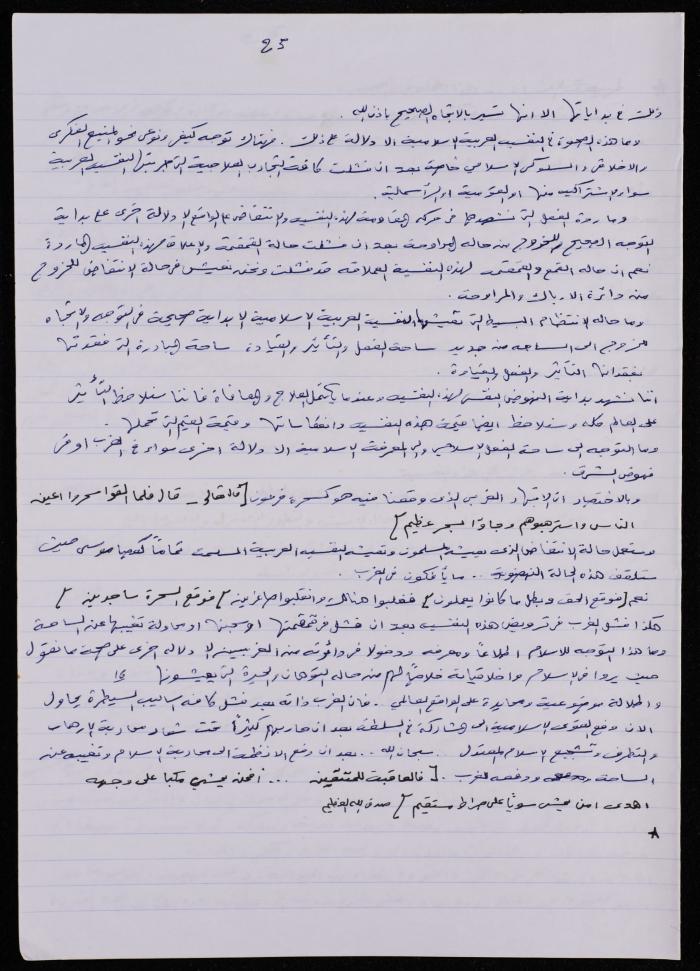 25
ذلك في بداياتها الا انها تسير بالاتجاه الصحيح باذن الله .
وما هذه الصحوة في النفسية العربية الاسلامية الا دلالة على ذلك . فهناك توجه كبير ونوعي نحو المنبع الفكري
والاخلاقي والسلوكي الاسلامي خاصة بعد ان فشلت كافة التجارب العلاجية التي جربتها النفسية العربية
سواء الاشتراكيه منها او القومية او الرأسمالية .
وما ردة الفعل التي نشهدها في حركة المقاومة لهذه النفسية والانتفاض على الواقع الا دلالة اخرى على بداية
التوجه الصحيح وللخروج من حاله المراوحة بعد ان فشلت حالة القمقمة والاعلاقة لهذه النفسية الماردة
نعم ان حاله القمع والقمقمة لهذه النفسية العملاقة قد فشلت ونحن نعيش في حالة الانتفاض للخروج
من دائرة الارباك والمراوحة .
وما حاله الانتظام البسيط التي تعيشها النفسية العربية الاسلامية الا بداية صحيحة في التوجه والاتجاه
للخروج الى الساحه من جديد ساحة الفعل والتأثير والقيادة ساحة المبادرة التي فقدتها
بفقدانها التأثير والفعل والقيادة .
اننا نشهد بداية النهوض النفسي لهذه النفسية وعندما يكتمل العلاج والمعافاة فاننا سنلاحظ التأثير
على العالم ككل وسنلاحظ ايضا قيمة هذه النفسية وانعكاساتها وقيمة القيم التي تحملها .
وما التوجه الى ساحة الفعل الاسلامي والى المعرفة الاسلامية الا دلالة اخرى سواء في الغرب او في
نهوض الشرق .
وبالاختصار ان الانبهار الغربي الذي وقعنا فيه هو كسحرة فرعون [ قال تعالى - قال فلما القوا سحروا اعين
الناس واسترهبوهم وجاؤا بسحر عظيم ]
وستعمل حالة الانتفاض الذي يعيشه المسلمون وتعيشه النفسية العربية المسلمة تماماً كعصا موسى حيث
ستلقف هذه الحالة النهضوية .. ما يأفكون في الغرب .
نعم [ فوقع الحق وبطل ما كانوا يعملون ] فغلبوا هنالك وانقلبوا صاغرين ] فوقع السحرة ساجدين ]
هكذا فشل الغرب في ترويض هذه النفسية بعد ان فشل في قمقمتها او سجنها او محاولة تغييبها عن الساحة
وما هذا التوجه للاسلام اطلاعاً ومعرفه ودخولا في دائرته من الغربيين الا دلاله اخرى على صحة ما نقول
حيث يروا في الاسلام واخلاقياته خلاصاً لهم من حاله التوهان والحيرة التي يعيشونها
واطلالة موضوعية ومحايدة على الواقع العالمي . فان الغرب ذاته بعد فشل كافه اساليب السيطرة يحاول
الان دفع القوى الاسلامية الى المشاركة في السلطة بعد ان حاربهم كثيراً تحت شعار محاربة الارهاب
والتطرف وتشجيع الاسلام المعتدل . سبحان الله .. بعد ان دفع الانظمة الى محاربة الاسلام وتغييبه عن
الساحة ودفعه للغرب . [ فالعاقبة للمتقين ... افمن يمشي مكبا على وجهه
اهدى امن يمشي سويا على صراط مستقيم ] صدق الله العظيم